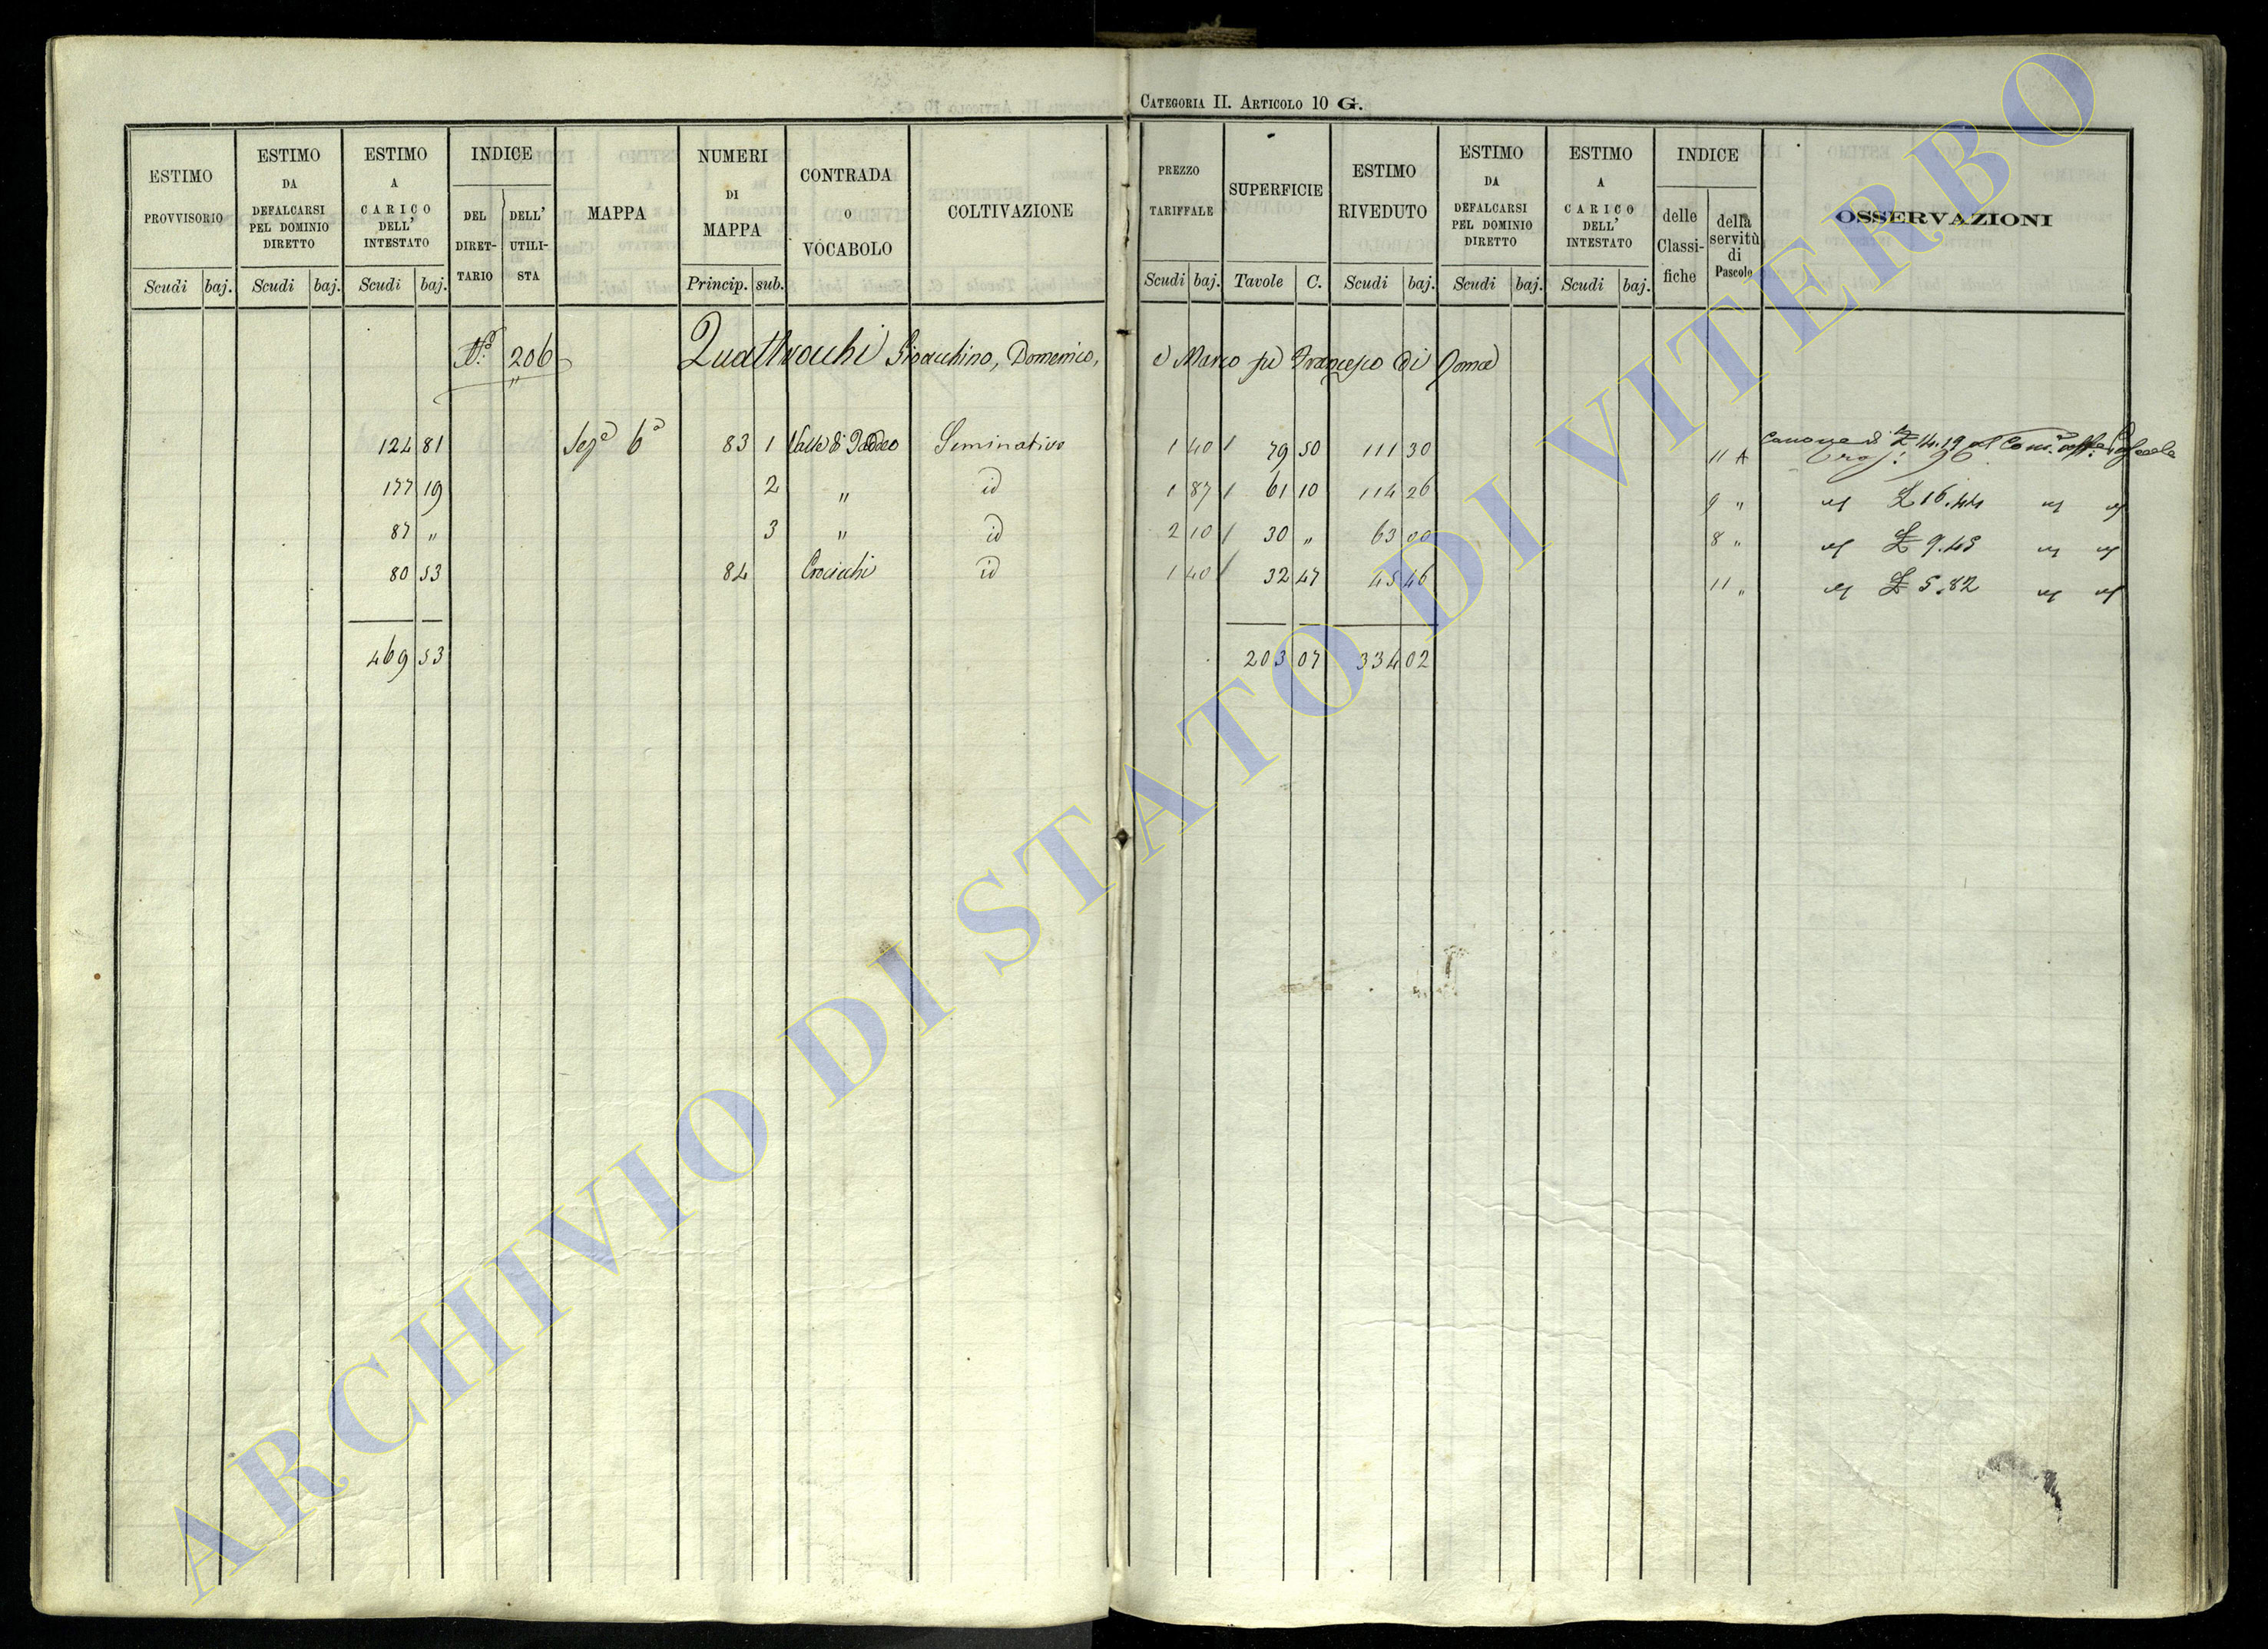 CATEGORIA II. ARTICOLO 10 G.
ESTIMO PROVVISORIO Scudi baj.
ESTIMO DA DEFALCARSI PEL DOMINIO DIRETTO Scudi baj.
ESTIMO A CARICO DELL' INTESTATO Scudi baj.
INDICE DEL DIRET-TARIO DELL' UTILI-STA
MAPPA
NUMERI DI MAPPA Princip. sub.
CONTRADA O VOCABOLO
COLTIVAZIONE
PREZZO TARIFFALE Scudi baj.
SUPERFICIE Tavole C.
ESTIMO RIVEDUTO Scudi baj.
ESTIMO DA DEFALCARSI PEL DOMINIO DIRETTO Scudi baj.
ESTIMO A CARICO DELL' INTESTATO Scudi baj.
INDICE delle Classi-fiche della servitù di Pascolo
OSSERVAZIONI
N.° 206 Quattrocchi Gioacchino, Domenico, e Marco fu Francesco di Roma
124 81 Sez.e 6a 83 1 Valle di Seminativo 1 40 79 50 111 30 11 A Canone di £ 14.19 al
177 19 2 " id 1 87 61 10 114 26 9 " " £ 16.44 " "
87 " 3 " id 2 10 30 " 63 00 8 " " £ 9.45 " "
80 53 84 Crocicchi id 1 40 32 47 45 46 11 " " £ 5.82 " "
469 53 203 07 334 02
ARCHIVIO DI STATO DI VITERBO